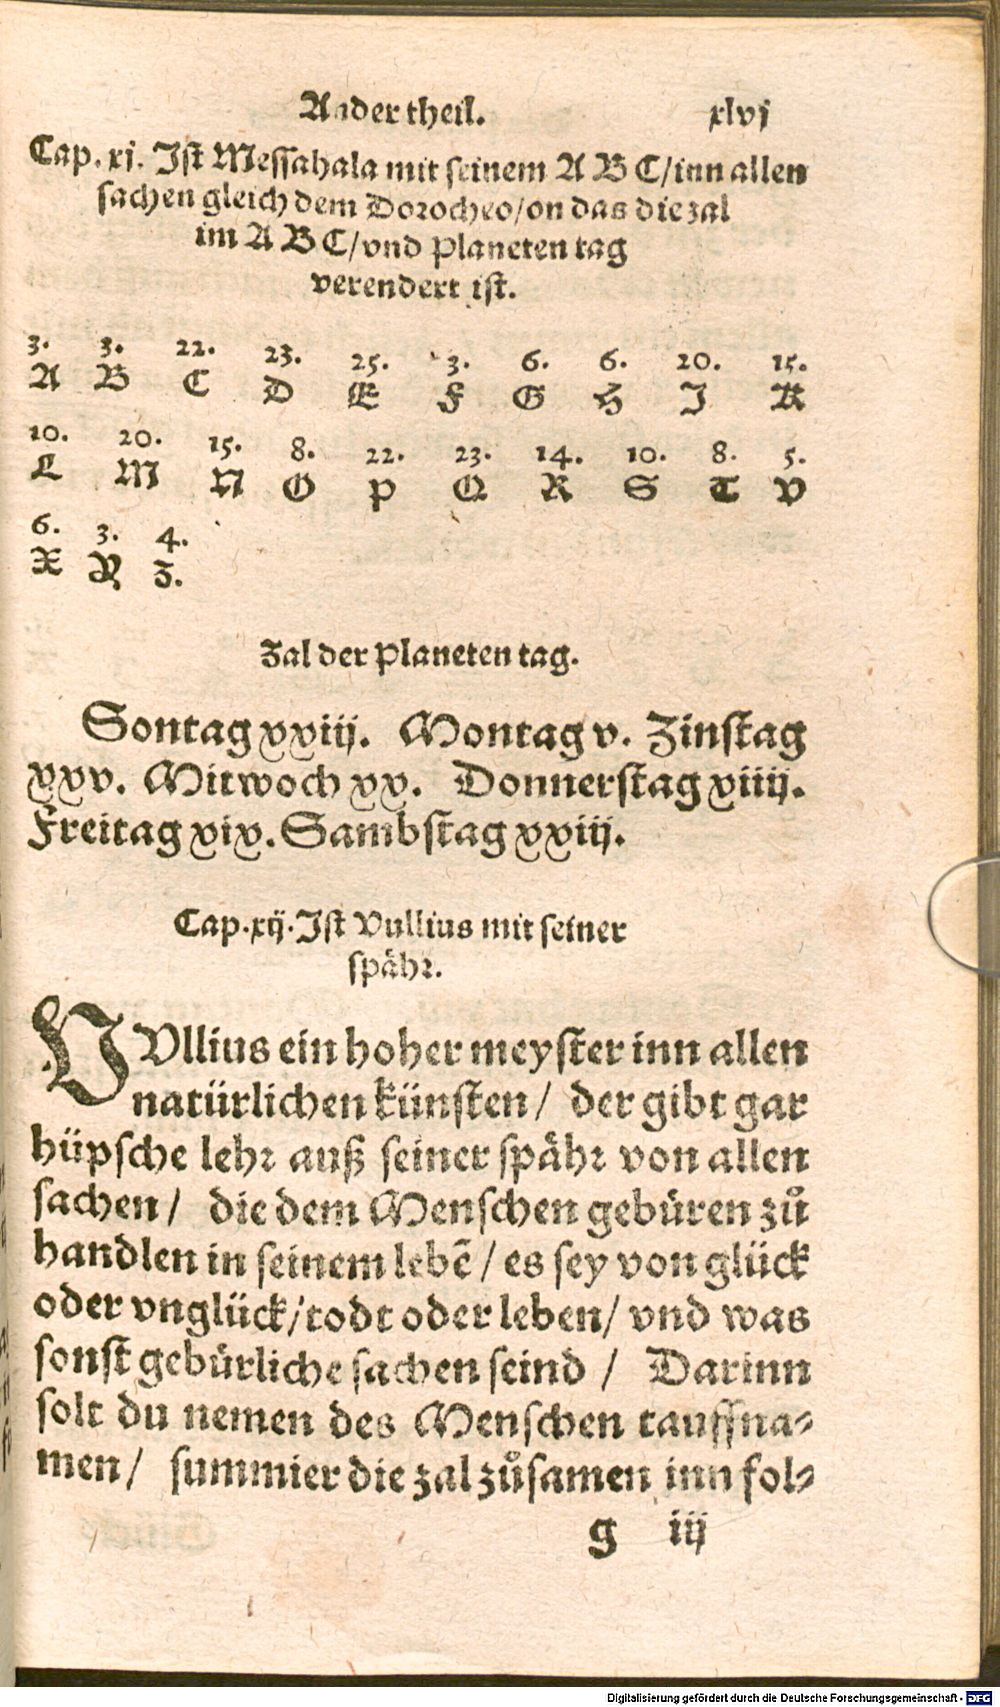 Ander theil. xlvj
Cap. xj. Ist Messahala mit seinem A B C/ inn allen
sachen gleich dem Dorocheo/ on das die zal
im A B C/ vnd Planeten tag
verendert ist.
3. 3. 22. 23. 25. 3. 6. 6. 20. 15.
A B C D E F G H I K
10. 20. 15. 8. 22. 23. 14. 10. 8. 5.
L M N O P Q R S T V
6. 3. 4.
X Y Z.
Zal der Planeten tag.
Sontag xxiij. Montag v. Zinstag
xxv. Mitwoch xx. Donnerstag xiiij.
Freitag xix. Sambstag xxiij.
Cap. xij. Ist Vullius mit seiner
spähr.
VVllius ein hoher meyster inn allen
natürlichen künsten/ der gibt gar
hüpsche lehr auß seiner spähr von allen
sachen/ die dem Menschen gebüren zů
handlen in seinem lebē/ es sey von glück
oder vnglück/ todt oder leben/ vnd was
sonst gebürliche sachen seind/ Darinn
solt du nemen des Menschen tauffna⸗
men/ summier die zal zůsamen inn fol⸗
g iij
Digitalisierung gefördert durch die Deutsche Forschungsgemeinschaft - DFG